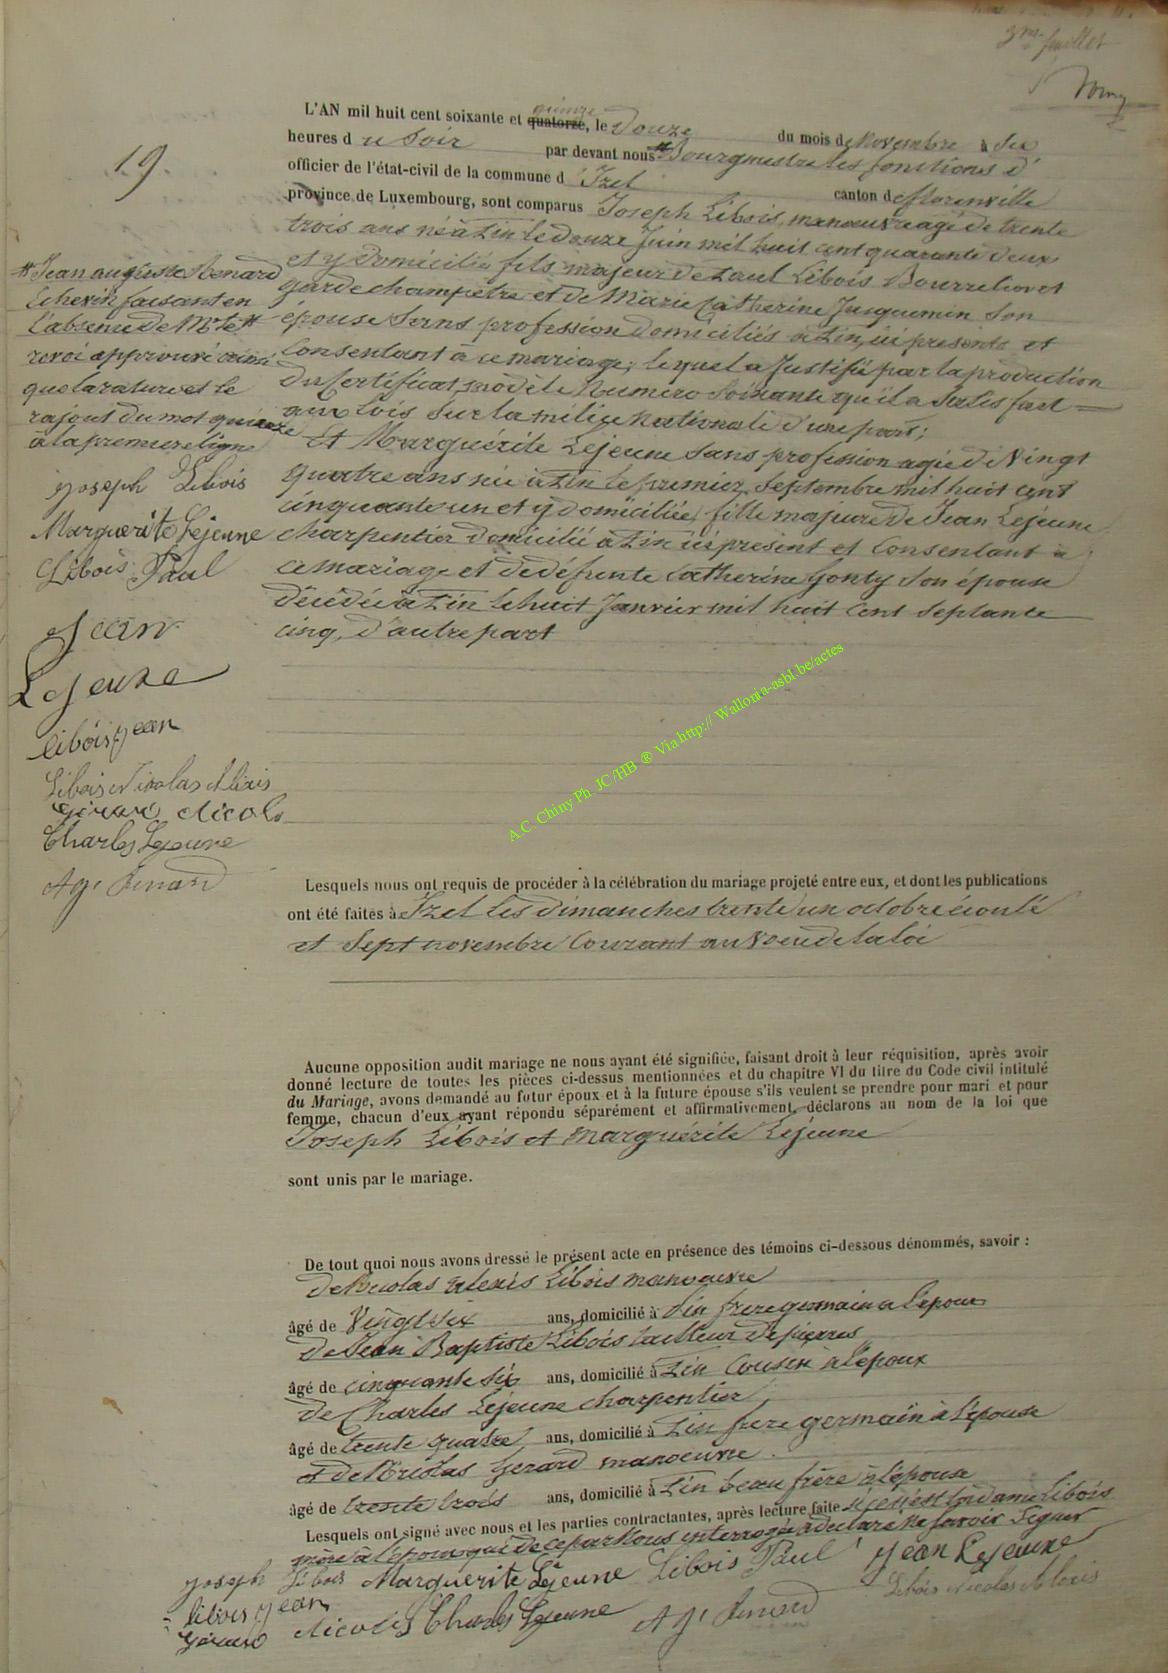 3me feuillet
19.
L'AN mil huit cent soixante et quatorze quinze, le Douze du mois de Novembre à Six
heures d u Soir par devant nous # Bourgmestre les fonctions d'
officier de l'état-civil de la commune d 'Izel canton de florenville
province de Luxembourg, sont comparus Joseph Libois, manoeuvre agé de trente
trois ans né à Pin le douze Juin mil huit cent quarante deux
et y Domicilié, fils majeur de Paul Libois Bourrelier et
garde champêtre et de Marie Catherine Jacquemin Son
épouse Sans profession domiciliés à Pin, ici présents et
Consentant à ce mariage; lequel a Justifié par la production
du Certificat modèle Numéro Soixante qu'il a Satisfait
aux lois Sur la milice Nationale d'une part;
Et Marguérite Lejeune Sans profession agée de Vingt
quatre ans née à Pin le premier Septembre mil huit cent
cinquante un et y domiciliée, fille majeure de Jean Lejeune
charpentier domicilié à Pin ici présent et Consentant à
ce mariage et de défunte Catherine Gonty Son épouse
Décédée à Pin le huit Janvier mil huit Cent Septante
cinq, d'autre part
# Jean auguste Renard
Echevin faisant en
l'absence de Mr le #
renvoi approuvé ainsi
que la rature et le
rajout du mot quinze
à la premiere ligne
Joseph Libois
Marguerite Lejeune
Libois Paul
Jean
Lejeune
libois jean
Libois Nicolas Alexis
Gérard Nicolas
Charles Lejeune
Ag. Renard
A.C. Chiny Ph. JC/HB ® Via http:// Wallonia-asbl.be/actes
Lesquels nous ont requis de procéder à la célébration du mariage projeté entre eux, et dont les publications
ont été faites à Izel les dimanches trente un octobre écoulé
et Sept novembre Courant au voeu de la loi
Aucune opposition audit mariage ne nous ayant été signifiée, faisant droit à leur réquisition, après avoir
donné lecture de toutes les pièces ci-dessus mentionnées et du chapitre VI du titre du Code civil intitulé
du Mariage, avons demandé au futur époux et à la future épouse s'ils veulent se prendre pour mari et pour
femme, chacun d'eux ayant répondu séparément et affirmativement, déclarons au nom de la loi que
Joseph Libois et Marguérite Lejeune
sont unis par le mariage.
De tout quoi nous avons dressé le présent acte en présence des témoins ci-dessous dénommés, savoir :
de Nicolas Alexis Libois manoeuvre
âgé de Vingt Six ans, domicilié à Pin frere germain a l'epoux
de Jean Baptiste Libois tailleur de pierres
âgé de cinquante Six ans, domicilié à Pin Cousin à l'époux
de Charles Lejeune charpentier
âgé de trente quatre ans, domicilié à Pin frere germain à l'épouse
et de Nicolas Gerard manoeuvre
âgé de trente trois ans, domicilié à Pin beau frère à l'épouse
Lesquels ont signé avec nous et les parties contractantes, après lecture faite Libois
mère à l'époux qui de ce par Nous interrogée a déclaré Ne Savoir Signer
Joseph Libois Marguérite Lejeune Libois Paul Jean Lejeune
libois jean Libois Nicolas Alexis
Gérard Nicolas Charles Lejeune Ag. Renard